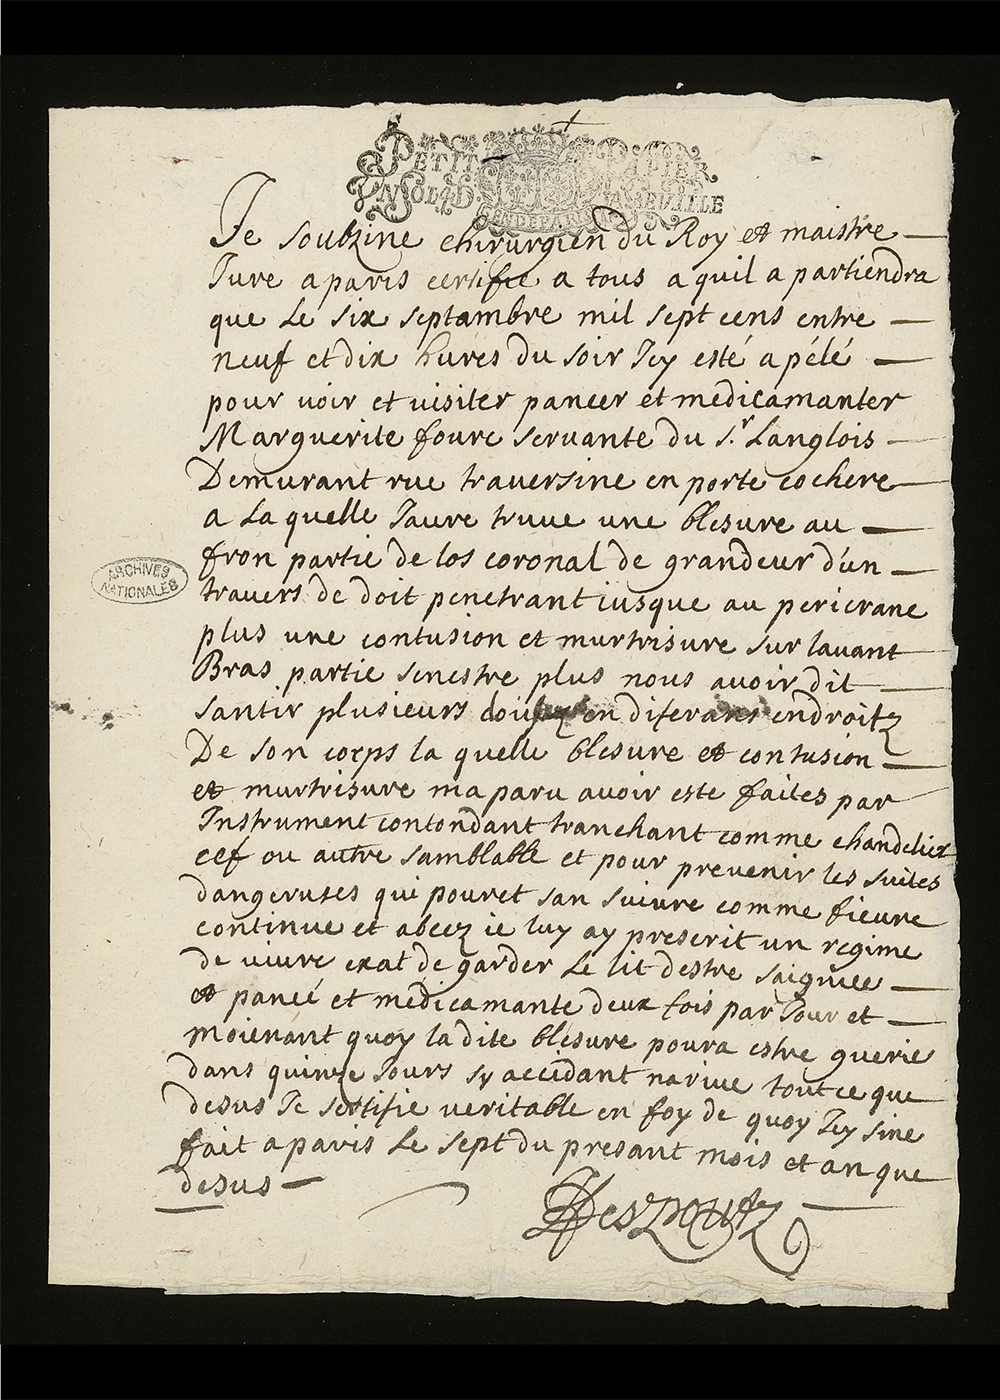 PETIT PAPIER
UN SOL 4 D. LA FEUILLE
GEN DE PARIS
Je soubzine chirurgien du Roy et maistre
Jure a paris certifie a tous a quil a partiendra
que Le six septambre mil sept cens entre
neuf et dix hures du soir Jey esté apélé
pour voir et visiter pancer et medicamanter
Marguerite foure servante du s.r Langlois
Demurant rue traversine en porte cochere
a La quelle Jaure truue une blesure au
fron partie de los coronal de grandeur dún
travers de doit penetrant iusque au pericrane
plus une contusion et murtrisure sur lavant
Bras partie senestre plus nous avoir dit
santir plusieurs en diferans endroitz
De son corps la quelle blesure et contusion
et murtrisure ma paru avoir este faites par
Instrument contondant tranchant comme chandelier
cef ou autre samblable et pour prevenir les suites
dangeruses qui pouret san suivre comme fieure
continue et abcez ie luy ay prescrit un regime
de vivre exat de garder Le lit destre saignee
et pancé et medicamante deux fois par Jour et
moienant quoy la dite blesure poura estre guerie
dans quinze Jours sy accidant narive tout ce que
desus Je sertifie veritable en foy de quoy Jey sine
fait a paris Le sept du presant mois et an que
desus
Desznoutz
ARCHIVES
NATIONALES